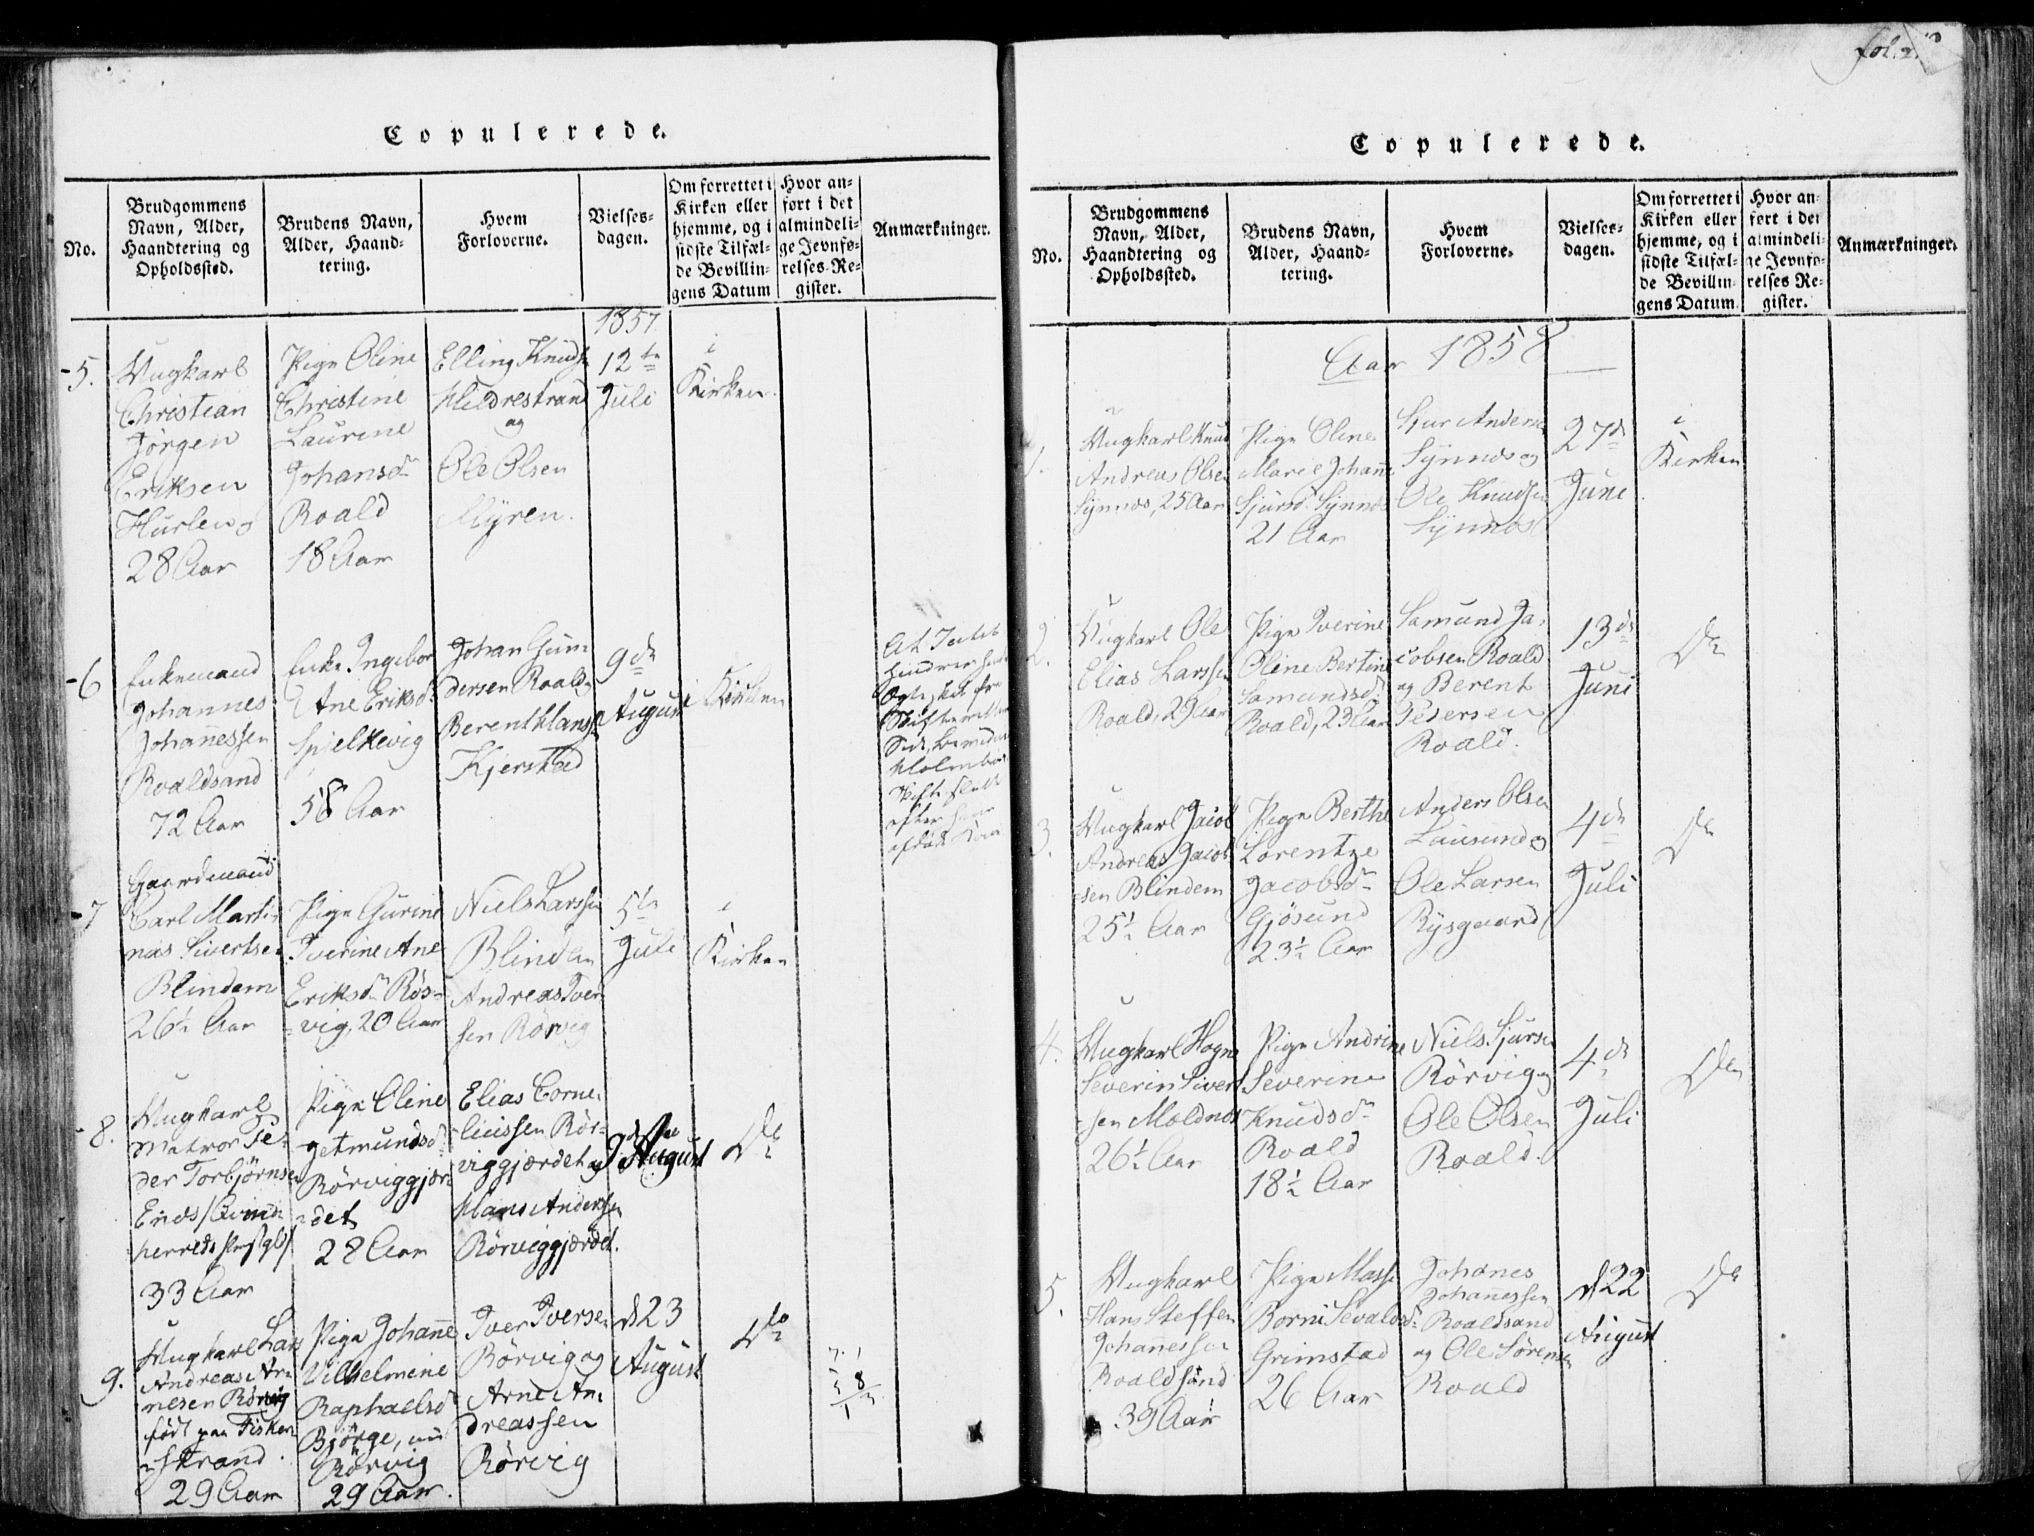 Copulerede.
No.
Brudgommens
Navn, Alder,
Haandtering og
Opholdssted.
Brudens Navn,
Alder, Haand-
tering.
Hvem
Forloverne.
Vielses-
dagen.
Om forrettet i
Kirken eller
hjemme, og i
sidste Tilfæl-
de Bevillin-
gens Datum
Hvor an-
ført i det
almindeli-
ge Jevnfø-
relses-Re-
gister.
Anmærkninger.
5.
Ungkarl
Christian
Jörgen
Eriksen
Hurlen
28 Aar
Pige Oline
Christine
Laurine
Johansdr
Roald
18 Aar
Elling Knuds
Hildrestrand
og
Ole Olsen
Myren.
1857
12te
Juli
i
Kirken
6
Enkemand
Johannes
Johannessen
Roaldsand
72 Aar
Enke Ingebor
Ane Eriksdr
Spjelkevig
58 Aar
Johan Gun-
dersen Roald
Berent Hanss
Kjerstad
9de
August
i
Kirken
At Intet
7
Gaardmand
Carl Marti-
nas Sivertsen
Blindem
26½ Aar
Pige Gurine
Iverine Ane
Eriksdr Rös-
vig, 20 Aar
Niels Larsen
Blindem
Andreas Iver
sen Rörvig
5te
Juli
i
Kirken
8.
Ungkarl
Matros Pe-
der Torbjörnsen
Enæs
33 Aar
Pige Oline
Getmundsdr
Rörviggjær-
det
28 Aar
Elias Corne-
liussen Rör-
viggjærdet og
Hans Andersen
Rörviggjærdet.
9de
August
Do
9.
Ungkarl Lars
Andreas Ar-
nesen Rörvig
födt paa Fisker-
strand.
29 Aar
Pige Johanne
Vilhelmine
Raphaelsdr
Bjørge, nu
Rörvig
29 Aar.
Iver Iversen
Rörvig og
Arne An-
dreassen
Rörvig
d 23
August
Do
fol.
Copulerede.
No.
Brudgommens
Navn, Alder,
Haandtering og
Opholdssted.
Brudens Navn,
Alder, Haand-
tering.
Hvem
Forloverne.
Vielses-
dagen.
Om forrettet i
Kirken eller
hjemme, og i
sidste Tilfæl-
de Bevillin-
gens Datum.
Hvor an-
ført i det
almindeli-
ge Jevnfø-
relses Re-
gister.
Anmærkninger.
Aar 1858
1.
Ungkarl Knud
Andreas Olsen
Synnæs, 25 Aar
Pige Oline
Marie Johanne
Sjursd. Synnæs
21 Aar
Sjur Andersen
Synnæs og
Ole Knudsen
Synnæs
27de
Juni
i
Kirken
2.
Ungkarl Ole
Elias Larssen
Roald, 29 Aar
Pige Iverine
Oline Bertine
Samundsdr
Roald, 23 Aar
Samund Ja-
cobsen Roald
og Berent
Pedersen
Roald.
13de
Juni
Do
3.
Ungkarl Jacob
Andreas Jacob
sen Blindem
25½ Aar
Pige Berthe
Lorentze
Jacobsdr
Gjösund
23½ Aar
Anders Olsen
Lausund og
Ole Larsen
Rysgaard
4de
Juli
Do
4.
Ungkarl Hogne
Severin Siver
sen Moldnæs
26½ Aar
Pige Andrine
Severine
Knudsdr
Roald
18½ Aar
Niels Sjursen
Rörvig og
Ole Olsen
Roald.
4de
Juli
Do
5.
Ungkarl
Hans Steffen
Johannessen
Roaldsand
39 Aar
Pige Masse
Borni Sevaldsdr
Grimstad
26 Aar
Johanes
Johanessen
Roaldsand
og Ole Sörensen
Roald
d 22
August
Do